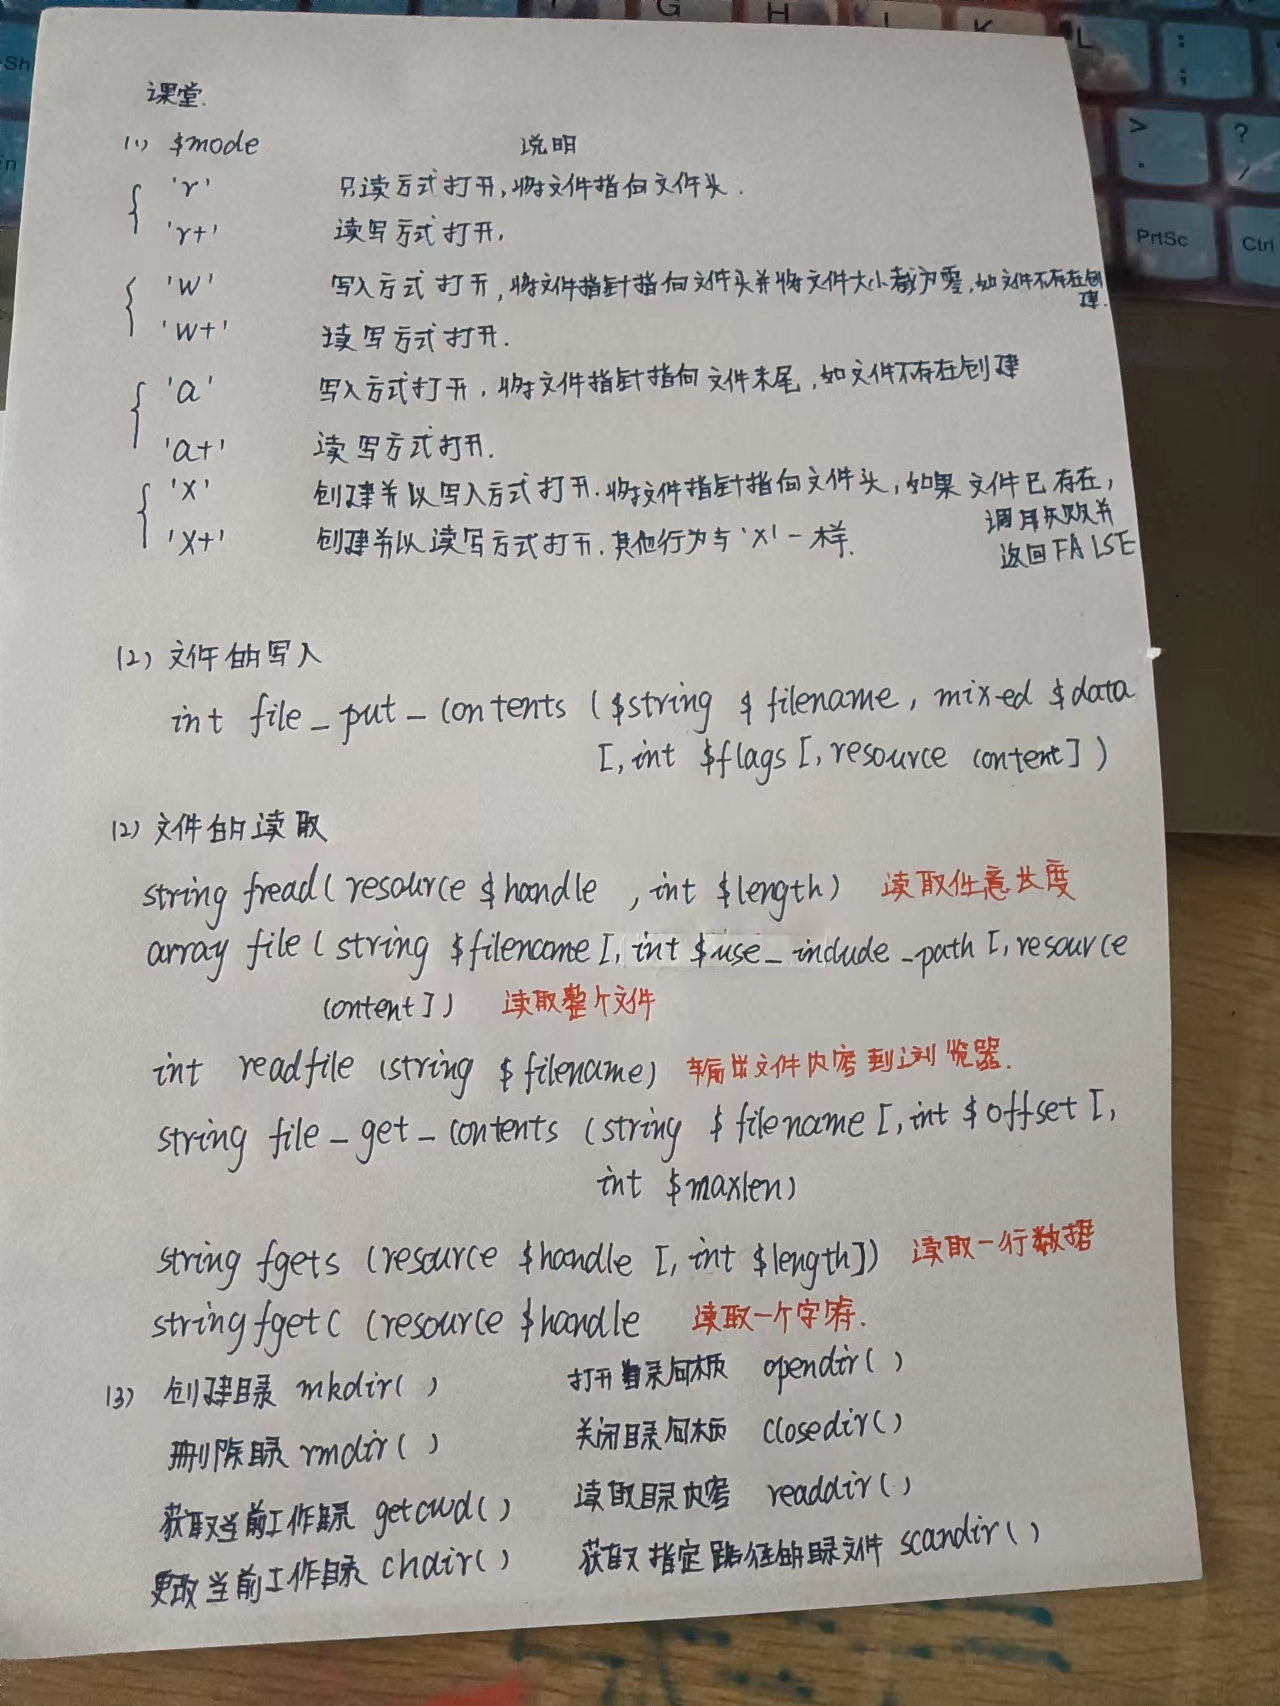 G H J K L : ;
Sh
> .
? /
PrtSc
Ctrl
课堂.
(1) $mode 说明
'r' 只读方式打开,将文件指向文件头.
'r+' 读写方式打开,
'w' 写入方式打开,将文件指针指向文件头并将文件大小截为零,如文件不存在创
建.
'w+' 读写方式打开.
'a' 写入方式打开,将文件指针指向文件末尾,如文件不存在创建
'a+' 读写方式打开.
'x' 创建并以写入方式打开.将文件指针指向文件头,如果文件已存在,
调用失败并
返回FALSE
'x+' 创建并以读写方式打开.其他行为与'x'一样.
(2) 文件的写入
int file_put_contents ($string $filename, mixed $data
[, int $flags [, resource content])
(2) 文件的读取
string fread( resource $handle , int $length) 读取任意长度
array file ( string $filename [, int $use_include_path [, resource
content]) 读取整个文件
int readfile (string $filename) 输出文件内容到浏览器.
string file_get_contents (string $filename [, int $offset [,
int $maxlen)
string fgets (resource $handle [, int $length]) 读取一行数据
string fgetc (resource $handle 读取一个字符.
(3) 创建目录 mkdir( ) 打开目录句柄 opendir( )
删除目录 rmdir( ) 关闭目录句柄 closedir( )
获取当前工作目录 getcwd( ) 读取目录内容 readdir( )
更改当前工作目录 chdir( ) 获取指定路径的目录文件 scandir( )